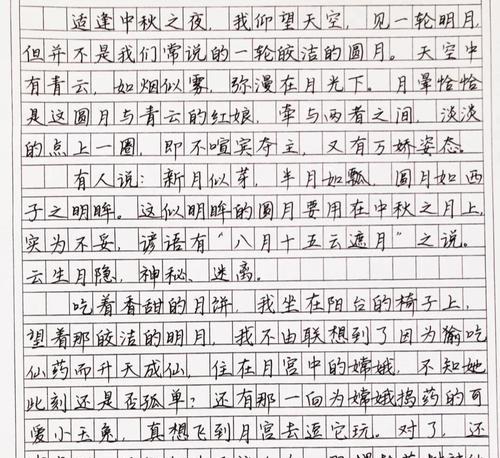 适逢中秋之夜，我仰望天空，见一轮明月，
但并不是我们常说的一轮皎洁的圆月。天空中
有青云，如烟似雾，弥漫在月光下。月晕恰恰
是这圆月与青云的红娘，牵与两者之间，淡淡
的点上一圈，即不喧宾夺主，又有万娇姿态。
有人说：新月似芽，半月如瓢，圆月如西
子之明眸。这似明眸的圆月要用在中秋之月上，
实为不妥，谚语有“八月十五云遮月”之说。
云生月隐，神秘、迷离。
吃着香甜的月饼，我坐在阳台的椅子上，
望着那皎洁的明月，我不由联想到了因为偷吃
仙药而升天成仙，住在月宫中的嫦娥，不知她
此刻还是否孤单；还有那一向为嫦娥捣药的可
爱小玉兔，真想飞到月宫去逗它玩。对了，还